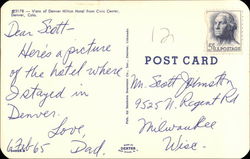 P21178 — View of Denver Hilton Hotel from Civic Center,
Denver, Colo.
12
Dear Scott—
Here's a picture
of the hotel where
I stayed in
Denver.
Love,
Dad.
POST CARD
U.S. POSTAGE
Mr. Scott Johnston
9525 N. Regent Rd
Milwaukee
Wisc.
DEXTER